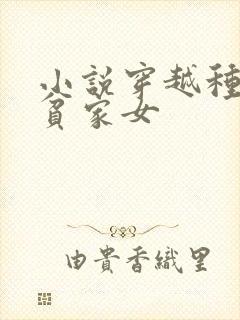 小説穿越種
貧家女
由貴香織里